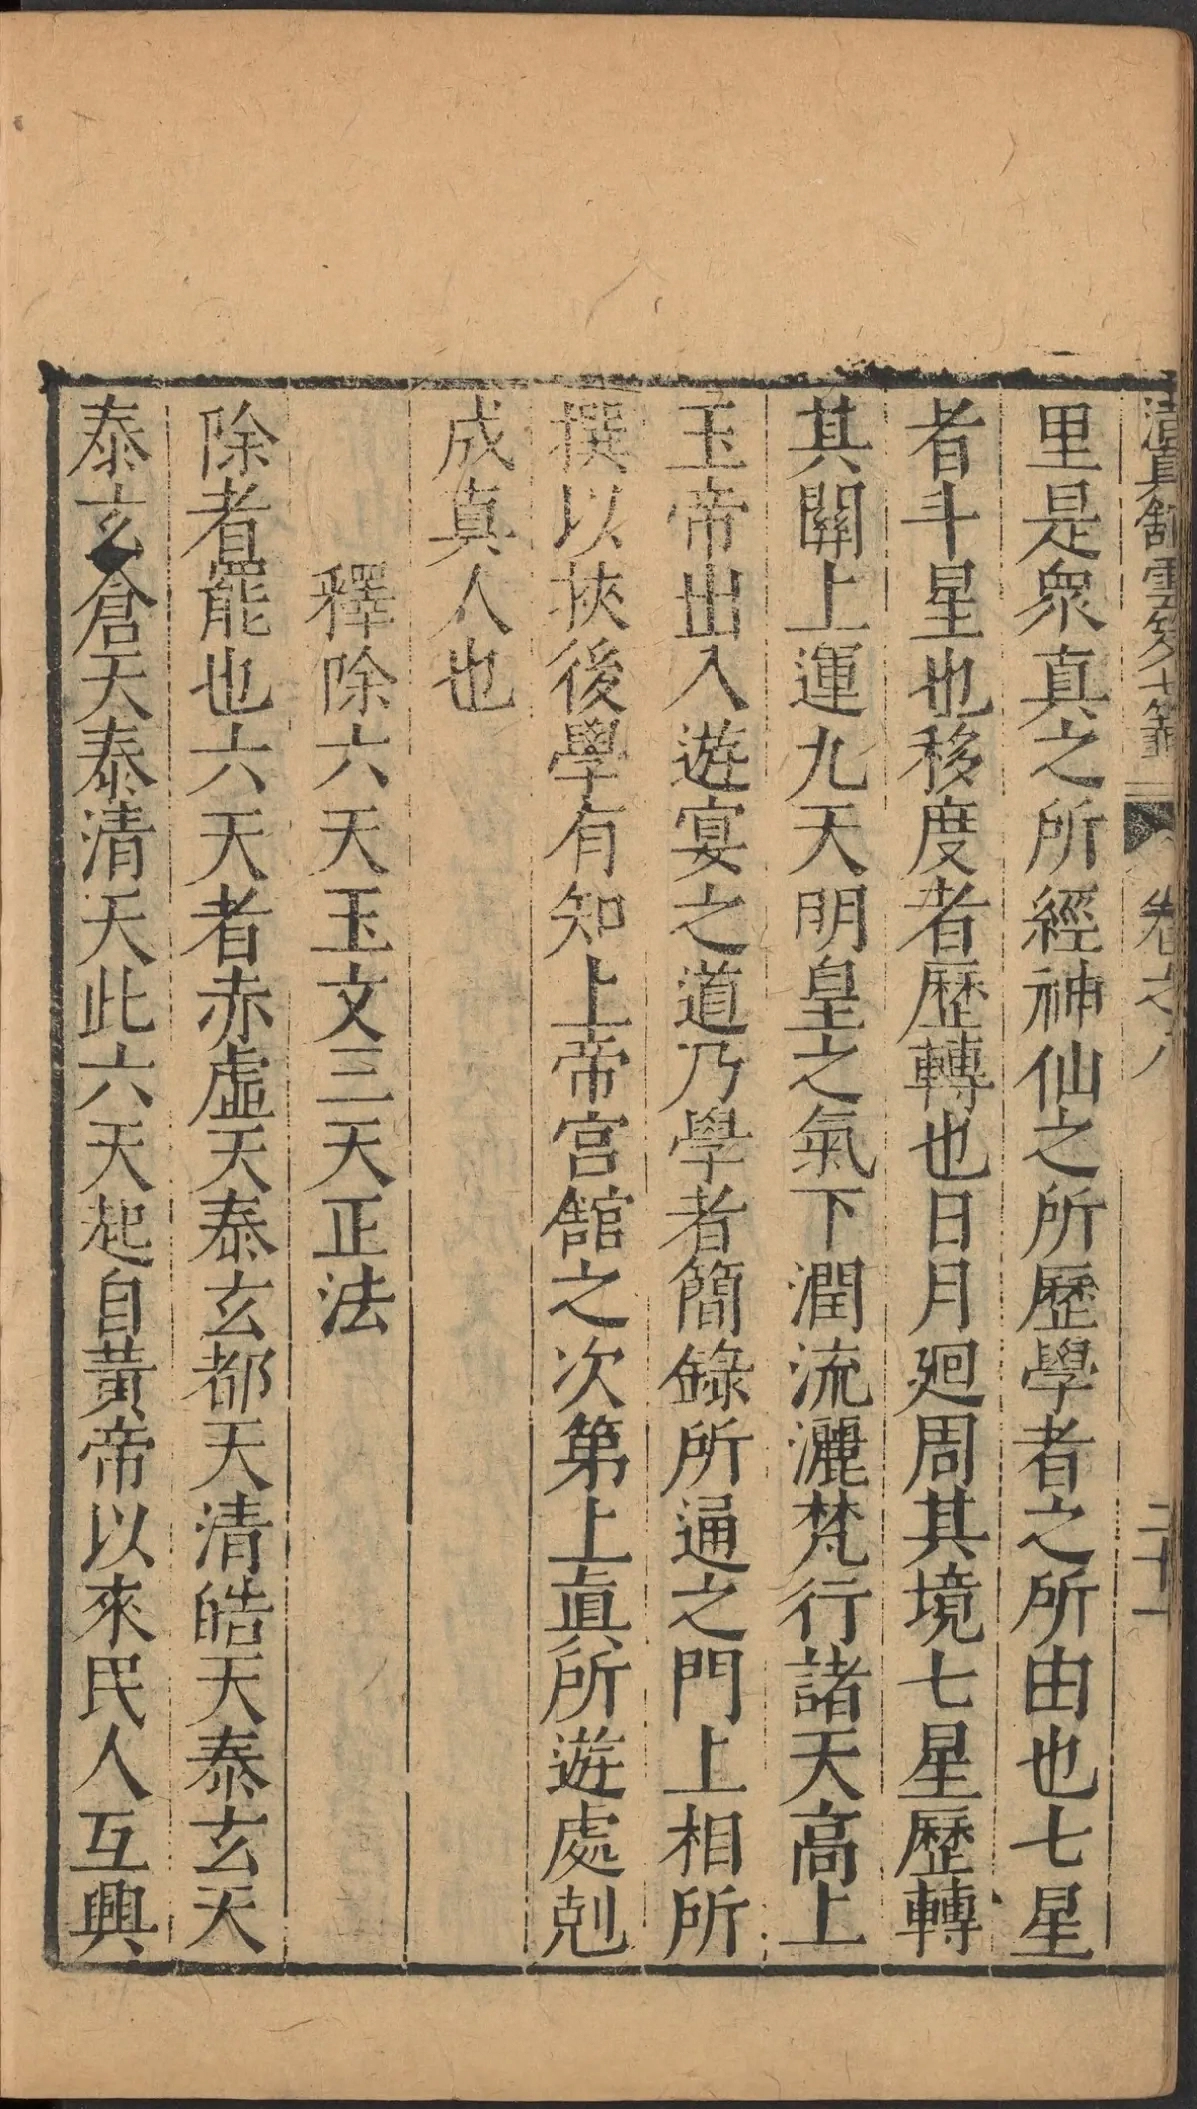 清真館雲笈七籤 卷之八 二十一
里是衆真之所經神仙之所歷學者之所由也七星
者斗星也移度者歷轉也日月廻周其境七星歷轉
其關上運九天明皇之氣下潤流灑梵行諸天高上
玉帝出入遊宴之道乃學者簡錄所通之門上相所
撰以挾後學有知上帝宮舘之次第上眞所遊處剋
成真人也
釋除六天玉文三天正法
除者罷也六天者赤虛天泰玄都天清皓天泰玄天
泰玄倉天泰清天此六天起自黃帝以來民人互興